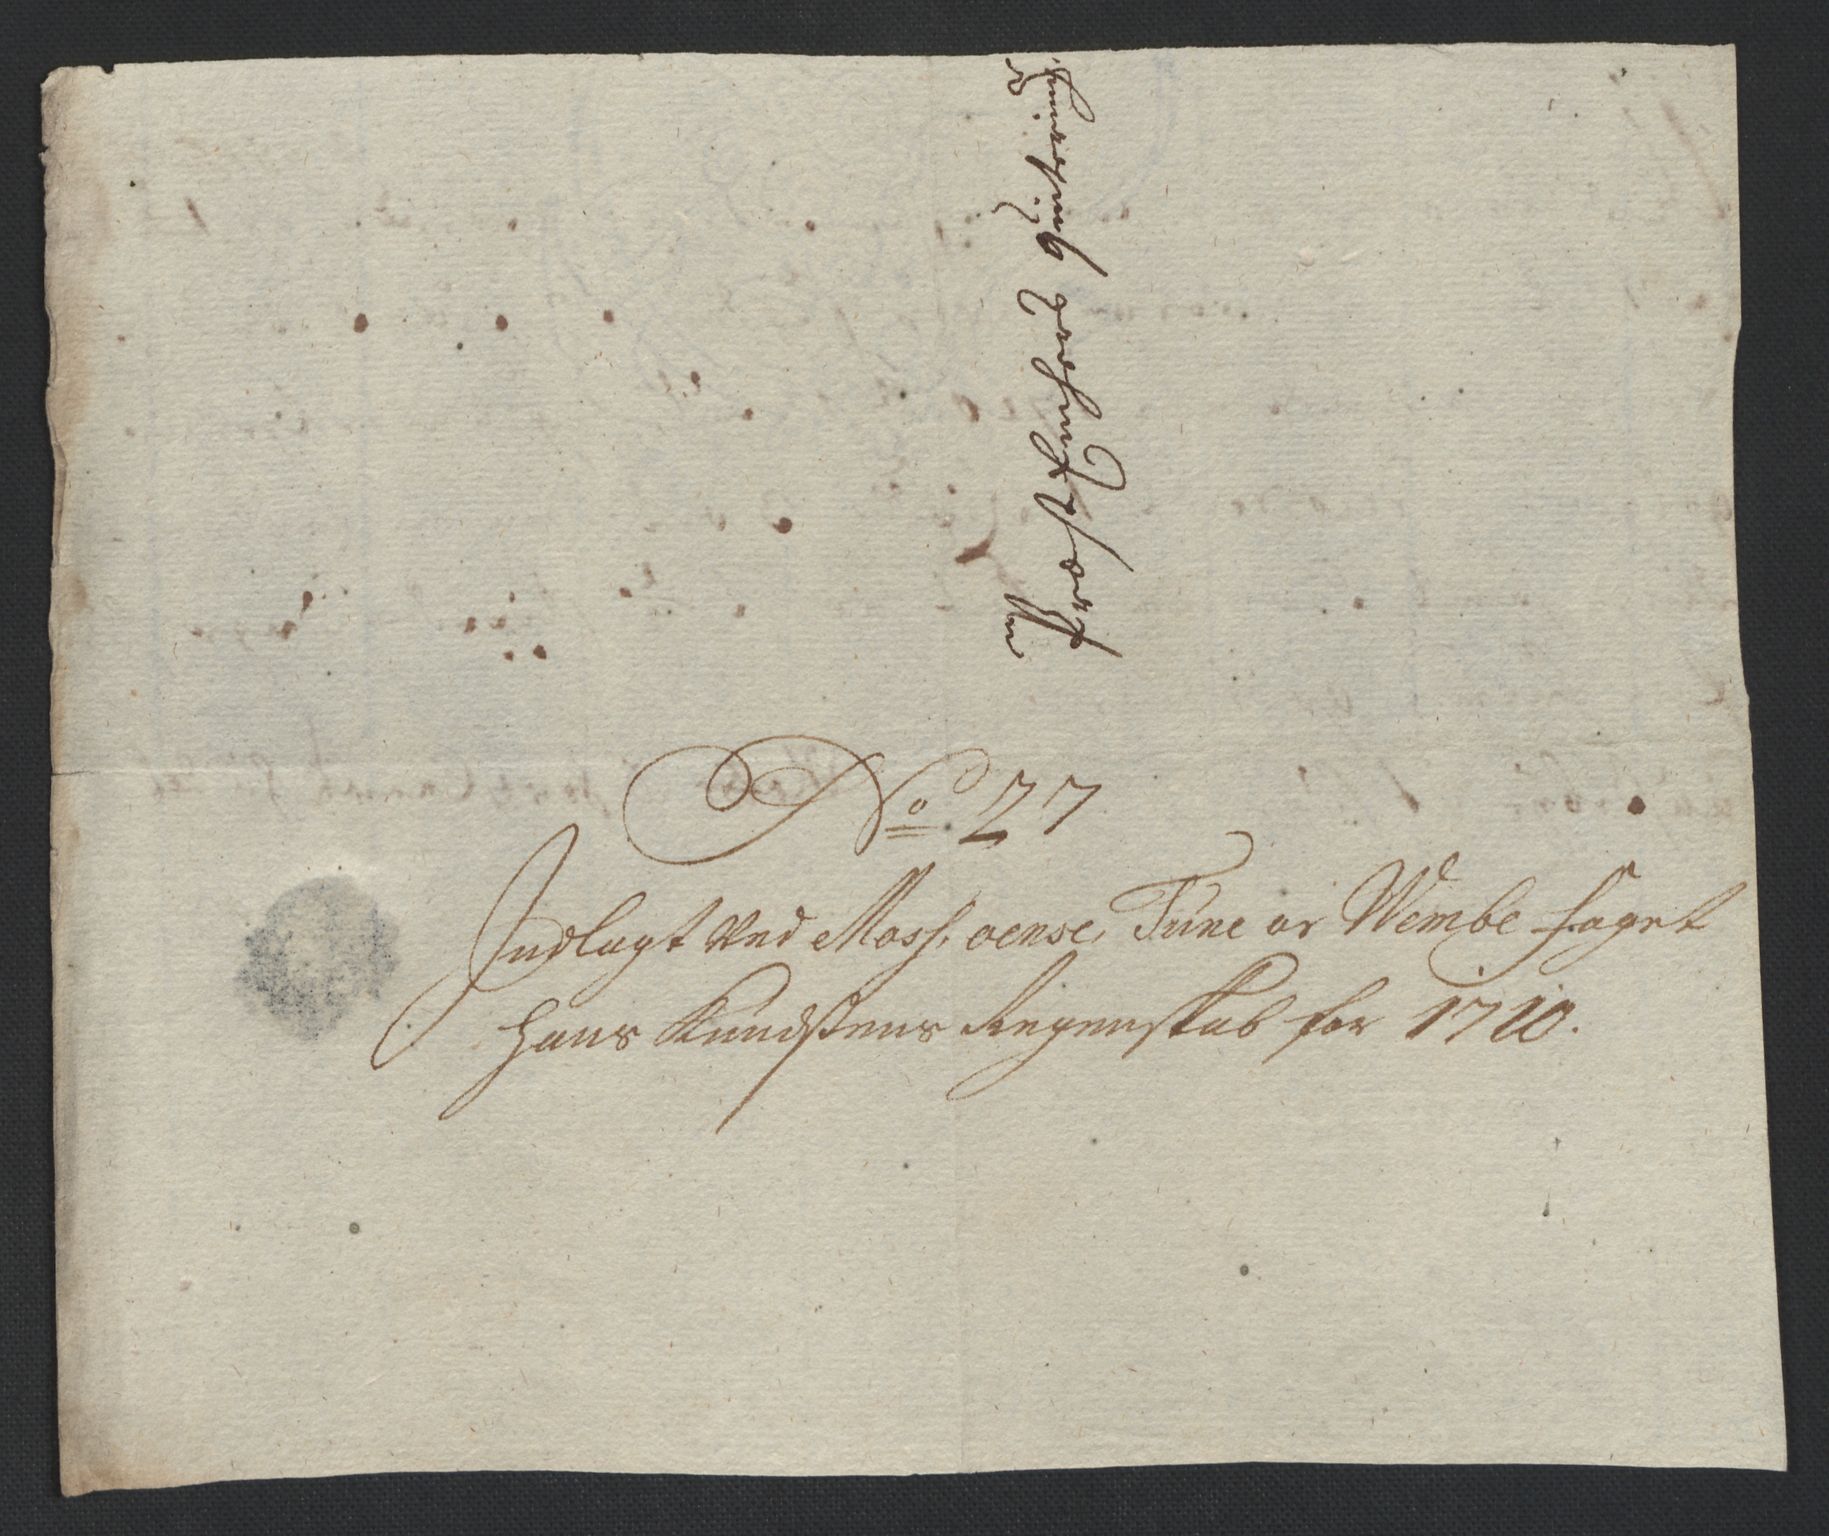 No 27
Indlagt ved Moss, oense, Tune oc Wembe foget
Hans Knudsens Regenskab for 1710.